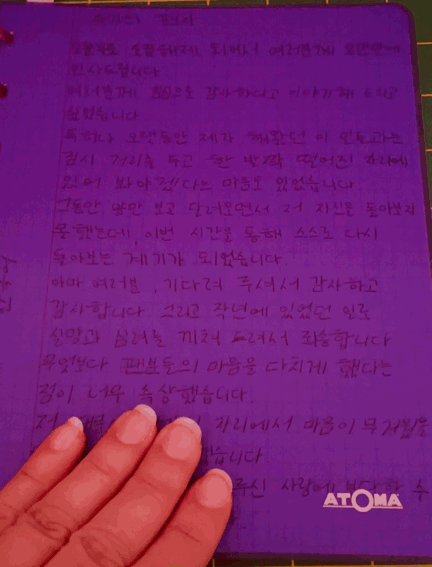 오늘부로 소집해제 되면서 여러분께 오랜만에
인사드립니다
여러분께 으로 감사하다고 이야기해 드리고
싶었습니다
특히나 오랫동안 제가 해왔던 이 일들과는
잠시 거리를 두고 한 발짝 떨어진 자리에
있어 봐야겠다는 마음도 있었습니다
그동안 앞만 보고 달려오면서 저 자신을 돌아보지
못했는데, 이번 시간을 통해 스스로 다시
돌아보는 계기가 되었습니다
아마 여러분, 기다려 주셔서 감사하고
감사합니다 그리고 작년에 있었던 일로
실망과 심려를 끼쳐 드려서 죄송합니다
무엇보다 팬분들의 마음을 다치게 했다는
점이 너무 속상했습니다.
저 자리에서 마음이 무거움을
습니다
주신 사랑에 보답할 수
ATOMA